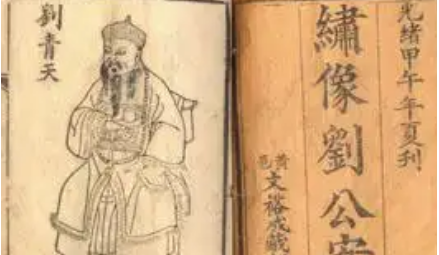 光緒甲午年夏刊
繡像劉公案
黄邑
文裕成藏
劉青天